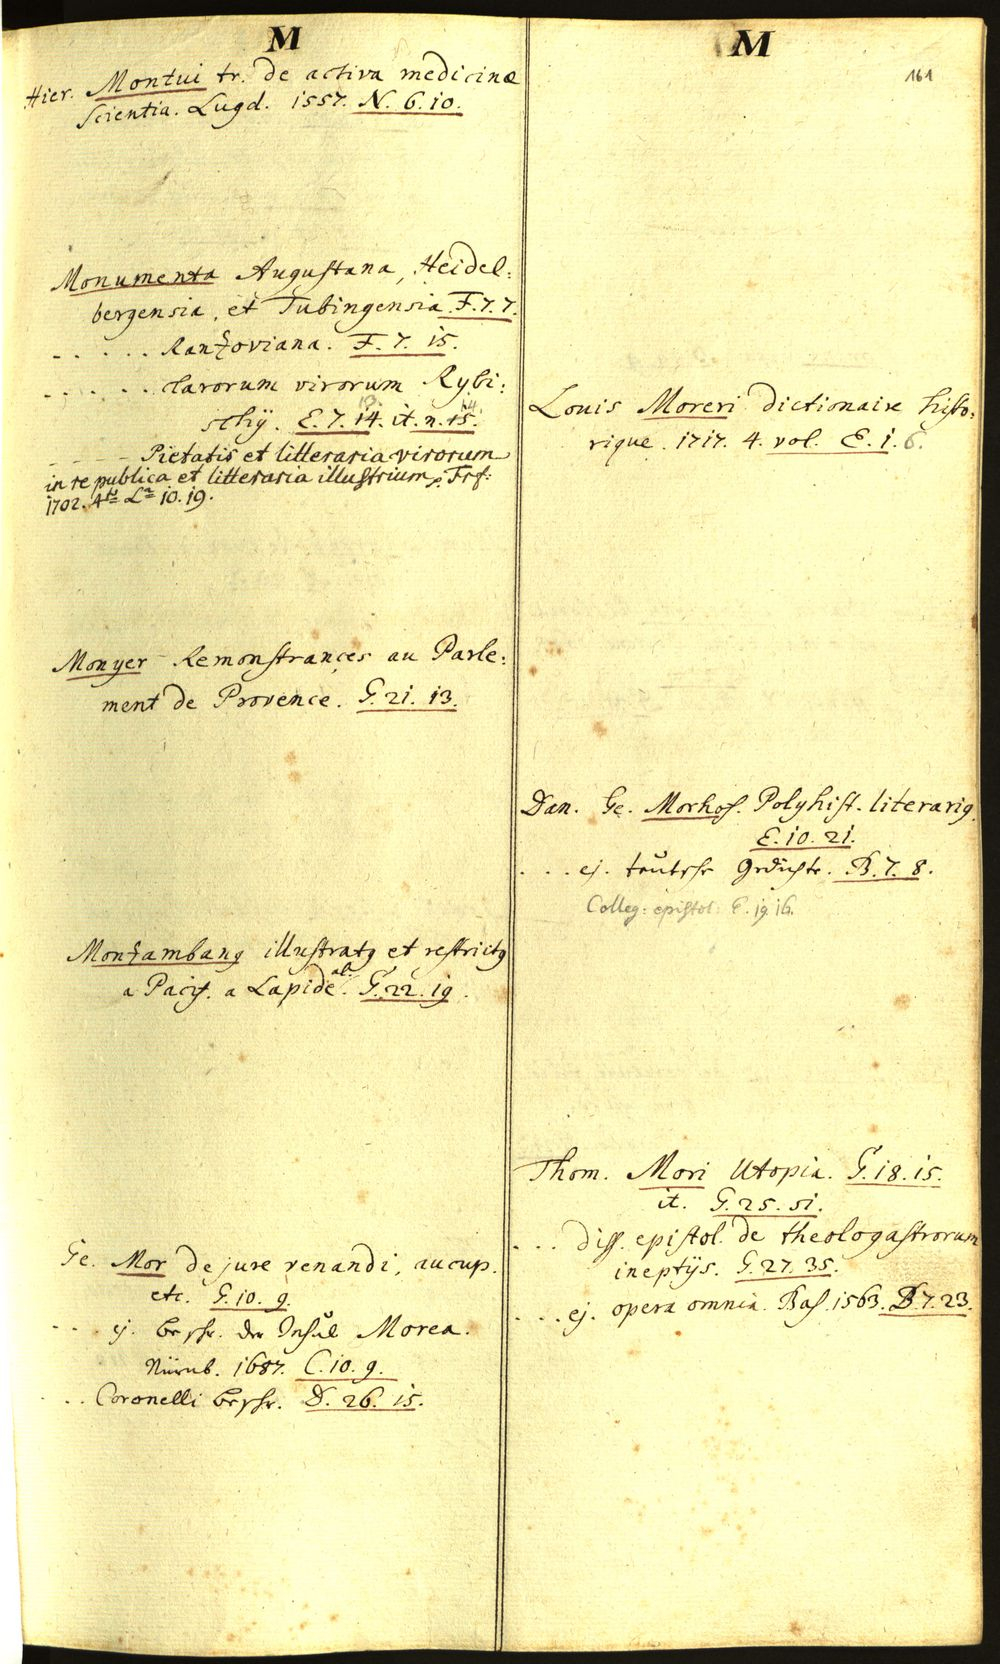 M
Hier. Montui tr. de activa medicinæ
scientia. Lugd. 1557. N. 6. 10.
Monumenta Augustana, Heidel:
bergensia, et Tubingensia. F. 7. 7.
- . . . . Ranzoviana. F. 7. 15.
. . . . . clarorum virorum Rybi:
schij. E. 7. 14. it. n. 15.
13. 14.
- - - - Pietatis et litteraria virorum
in re publica et litteraria illustrium. Frf:
1702. 4to Ln 10. 19.
Monyer Remonstrances au Parle:
ment de Provence. G. 21. 13.
Monzambang illustratg et restrictg
a Pacif. a Lapide. al. G. 22. 19.
Ge. Mor de jure venandi, aucup.
etc. G. 10. 9.
. . . ej. beschr. der Insul Morea.
Nürnb. 1687. C. 10. 9.
. . Coronelli beschr. D. 26. 15.
M
161
Louis Moreri dictionaire histo:
rique. 1717. 4. vol. E. 1. 6.
Dan. Ge. Morhof. Polyhist. literarig.
E. 10. 21.
. . . ej. teutsche Gedichte. B. 7. 8.
Colleg: epistol: E. 19. 16.
Thom. Mori Utopia. G. 18. 15.
it. G. 25. 51.
. . . diss. epistol. de theologastrorum
ineptijs. G. 27. 35.
. . . ej. opera omnia. Bas. 1563. B. 7. 23.